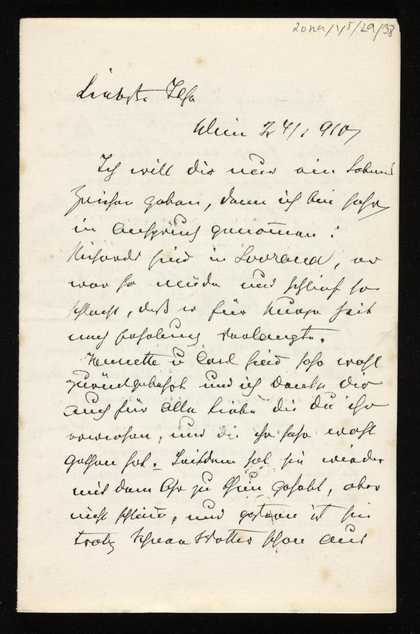 Liebste Ilse
Wien 24/1 910
Ich will dir nur ein Lebens
zeichen geben, denn ich bin sehr
in Anspruch genommen!
Richards sind in Lovrana, er
war so müde und schlief so
schlecht, daß er für kurze Zeit
nach Erholung verlangte.
Henriette u Carl sind sehr wohl
zurückgekehrt und ich danke dir
auch für alle Liebe die du ihr
erwiesen, und die ihr sehr wohl
gethan hat. Seitdem hat sie wieder
mit dem Ohr zu thun gehabt, aber
nicht schlimm, und gestern ist sie
trotz Schnee Wetter schon aus